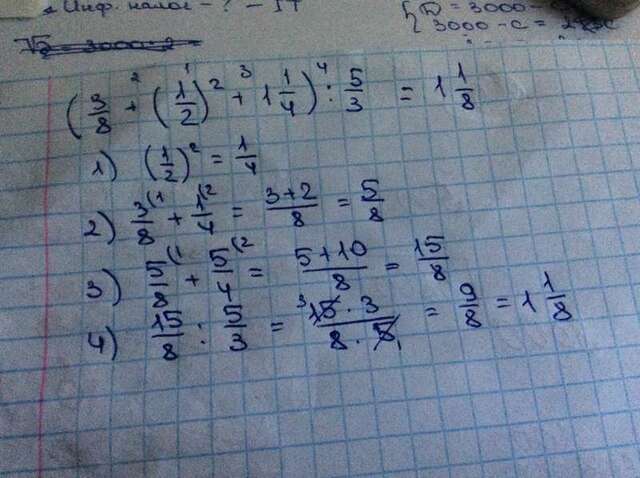 Инф. налог - ? - 5T
П = 3000 - C
3000 - C =
√2 = 3000 - 2
(3/8 + (1/2)² + 1 1/4) : 5/3 = 1 1/8
1) (1/2)² = 1/4
2) 3/8 + 1/4 = 3+2/8 = 5/8
3) 5/8 + 5/4 = 5+10/8 = 15/8
4) 15/8 : 5/3 = 15 · 3/8 · 5 = 9/8 = 1 1/8